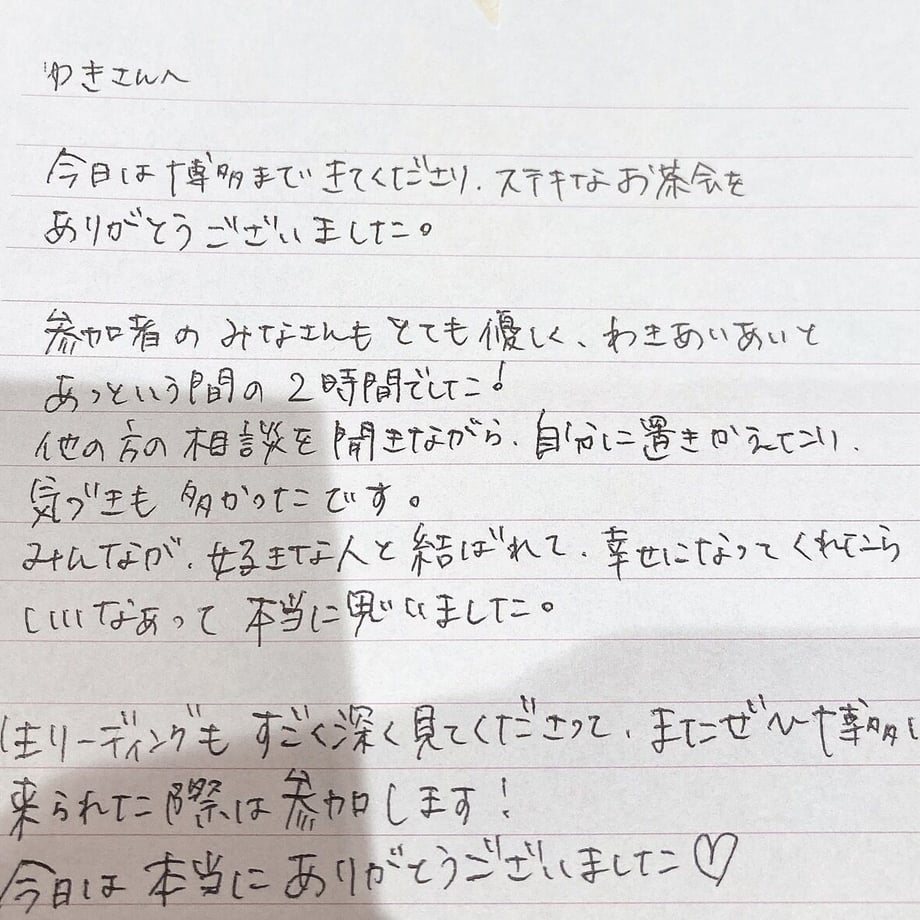 ゆきさんへ
今日は博多まできてくださり、ステキなお茶会を
ありがとうございました。
参加者のみなさんもとても優しく、わきあいあいと
あっという間の2時間でした!
他の方の相談を聞きながら、自分に置きかえてたり、
気づきも多かったです。
みんなが、好きな人と結ばれて、幸せになってくれたら
いいなあって本当に思いました。
リーディングもすごく深く見てくださって、またぜひ博多に
来られた際は参加します!
今日は本当にありがとうございました♡